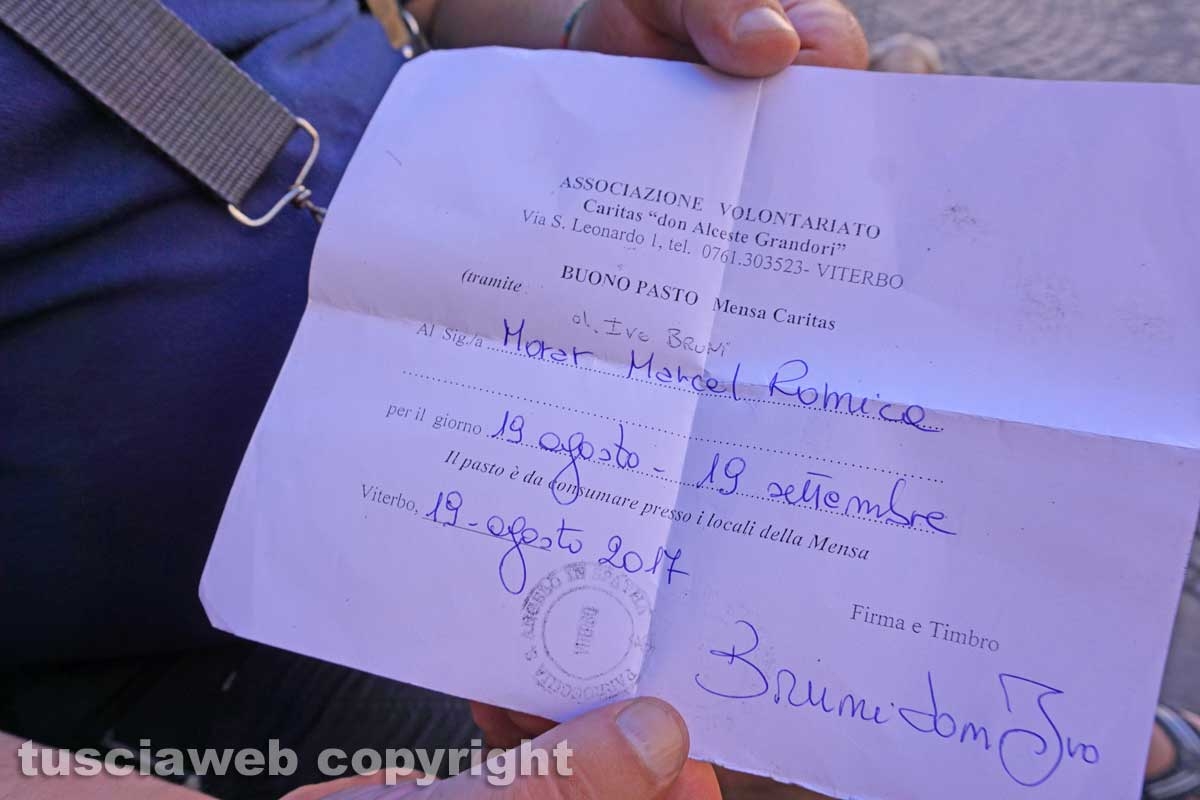 ASSOCIAZIONE VOLONTARIATO
Caritas “don Alceste Grandori”
Via S. Leonardo 1, tel. 0761.303523- VITERBO
BUONO PASTO Mensa Caritas
(tramite
d. Ivo BRUNI
Al Sig./a Morar Marcel Romica
per il giorno 19 agosto - 19 settembre
Il pasto è da consumare presso i locali della Mensa
Viterbo, 19 - agosto 2017
PARROCCHIA S. ANGELO IN SPATHA
VITERBO
Firma e Timbro
Bruni don Ivo
tusciaweb copyright